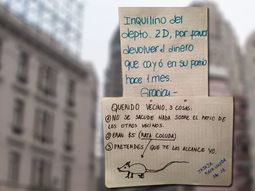 Inquilino del
depto. 2D, por favor
devolver el dinero
que cayó en su patio
hace 1 mes.
Gracias.-
QUERIDO VECINO, 3 COSAS:
① NO SE SALUDE NADA SOBRE EL PATIO DE
LOS OTROS VECINOS.
② ERAN $5 (RATA COLUDA)
③ PRETENDES QUE TE LAS ALCANCE YO.